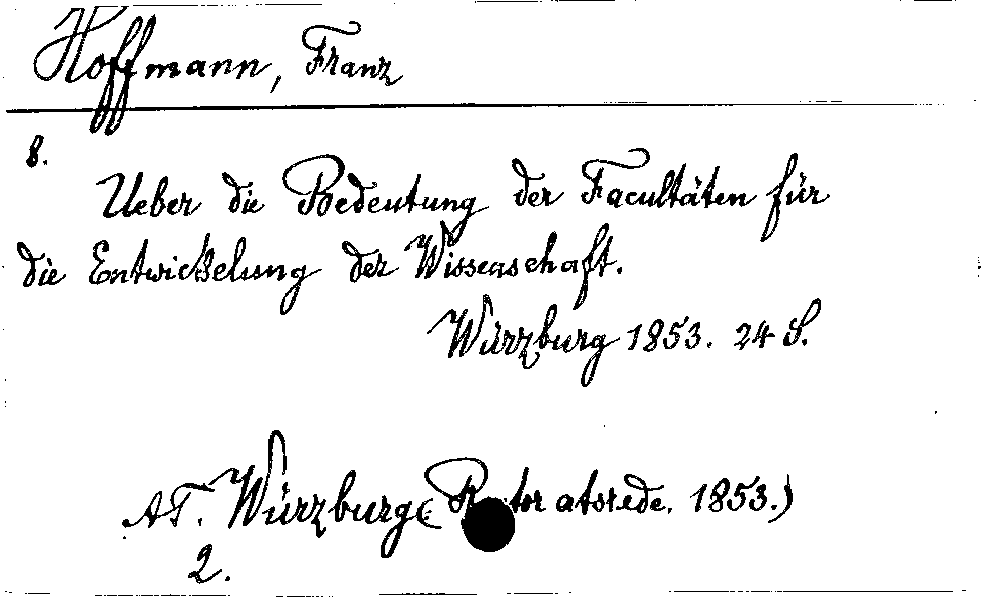 Hoffmann, Franz
8.
Ueber die Bedeutung der Facultäten für
die Entwickelung der Wissenschaft.
Würzburg 1853. 24 S.
AT. Würzburg (Rectoratsrede. 1853.)
2.